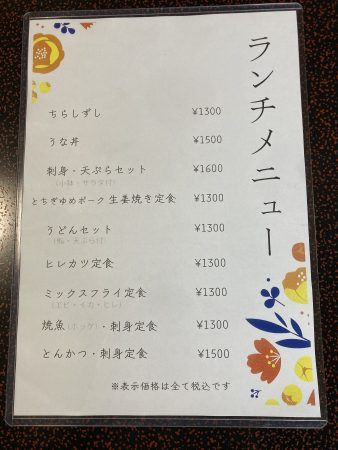 ランチメニュー
ちらしずし ¥1300
うな丼 ¥1500
刺身・天ぷらセット ¥1600
(小鉢・サラダ付)
とちぎゆめポーク 生姜焼き定食 ¥1300
うどんセット ¥1300
(鮨・天ぷら付)
ヒレカツ定食 ¥1300
ミックスフライ定食 ¥1300
(エビ・イカ・ヒレ)
焼魚(ホッケ)・刺身定食 ¥1300
とんかつ・刺身定食 ¥1500
※表示価格は全て税込です